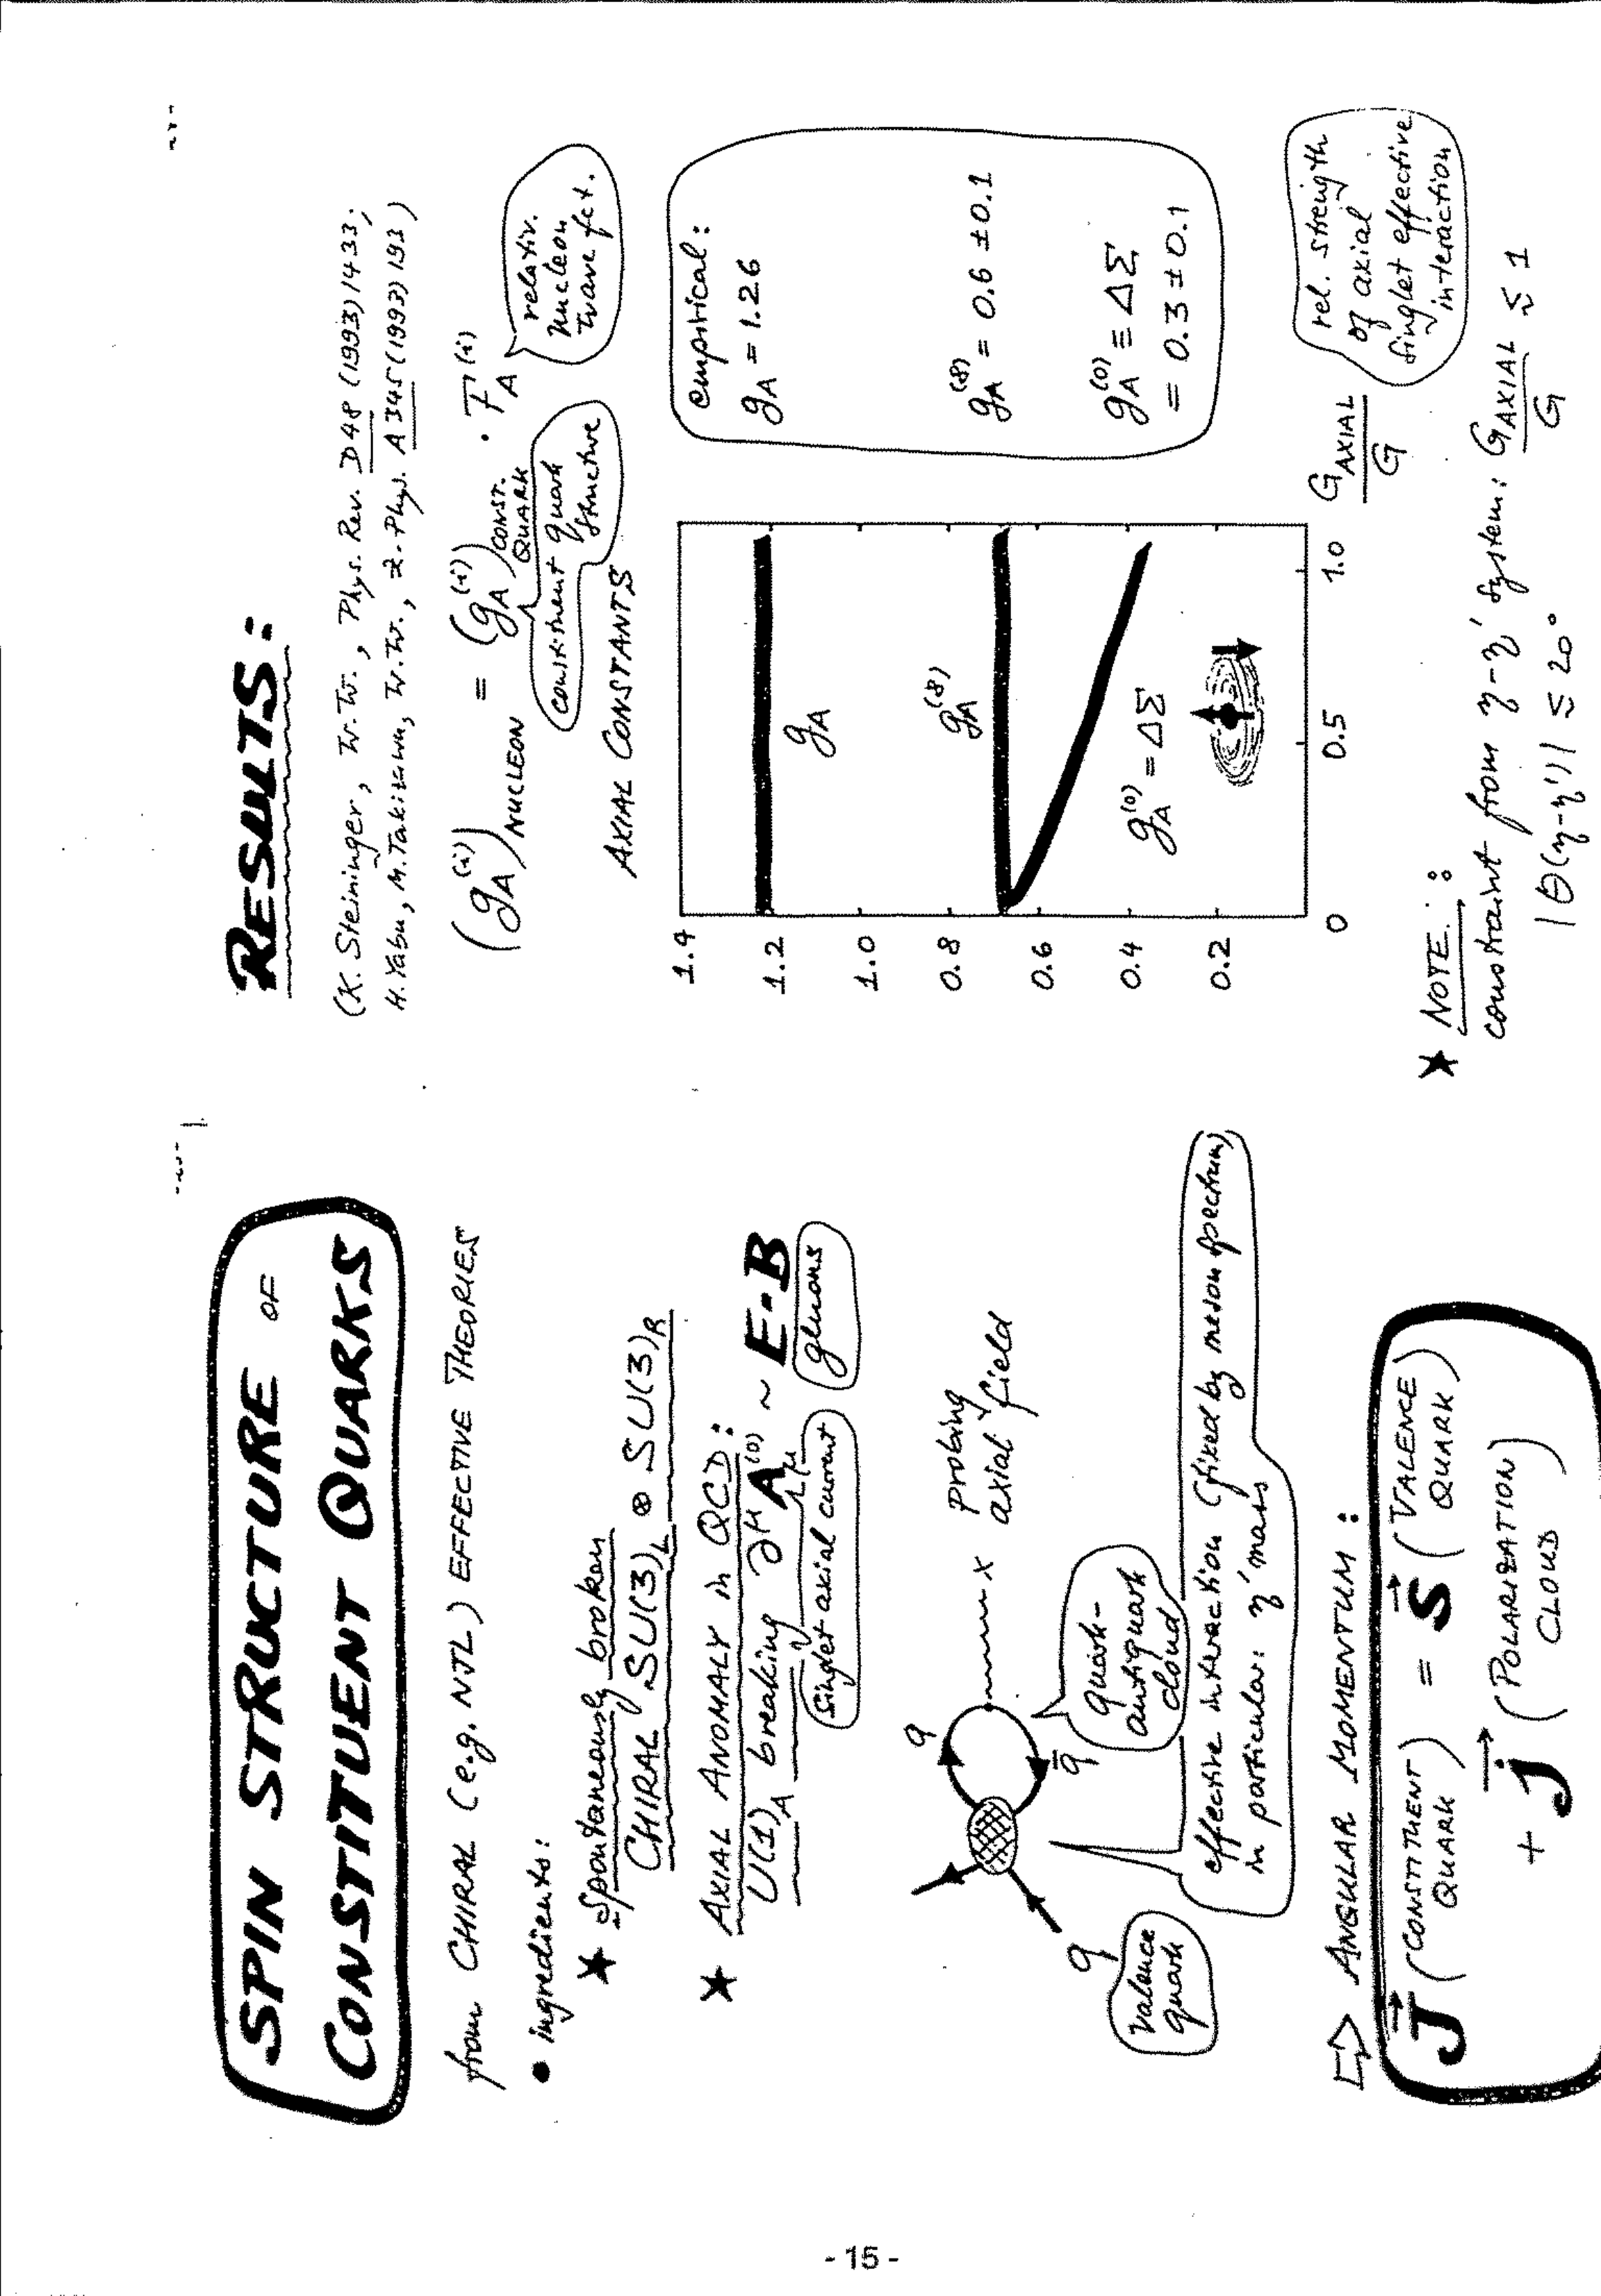 SPIN STRUCTURE OF
CONSTITUENT QUARKS
from CHIRAL (e.g. NJL) EFFECTIVE THEORIES
• ingredients:
★ Spontaneously broken
CHIRAL SU(3)_L ⊗ SU(3)_R
★ AXIAL ANOMALY in QCD:
U(1)_A breaking ∂^μ A_μ^(0) ~ E·B
singlet axial current
gluons
q
q̄
probing
axial field
x
q
valence
quark
quark-
antiquark
cloud
effective interaction (fixed by meson spectrum)
in particular: η' mass
⇒ ANGULAR MOMENTUM:
J⃗ (CONSTITUENT QUARK) = S⃗ (VALENCE QUARK)
+ J⃗ (POLARIZATION CLOUD)
RESULTS:
(K. Steininger, W.W., Phys. Rev. D48 (1993) 1433;
H. Yabu, M. Takizawa, W.W., Z. Phys. A345 (1993) 193)
(g_A^(i))_NUCLEON = (g_A^(i))_CONST. QUARK · F_A^(i)
constituent quark
structure
relativ.
nucleon
wave fct.
AXIAL CONSTANTS
1.4
1.2
1.0
0.8
0.6
0.4
0.2
0
0.5
1.0
g_A
g_A^(8)
g_A^(0) = ΔΣ
G_AXIAL / G
empirical:
g_A = 1.26
g_A^(8) = 0.6 ± 0.1
g_A^(0) ≡ ΔΣ
= 0.3 ± 0.1
rel. strength
of axial
singlet effective
interaction
★ NOTE:
constraint from η-η' system: G_AXIAL / G ≲ 1
|θ(η-η')| ≲ 20°
- 15 -